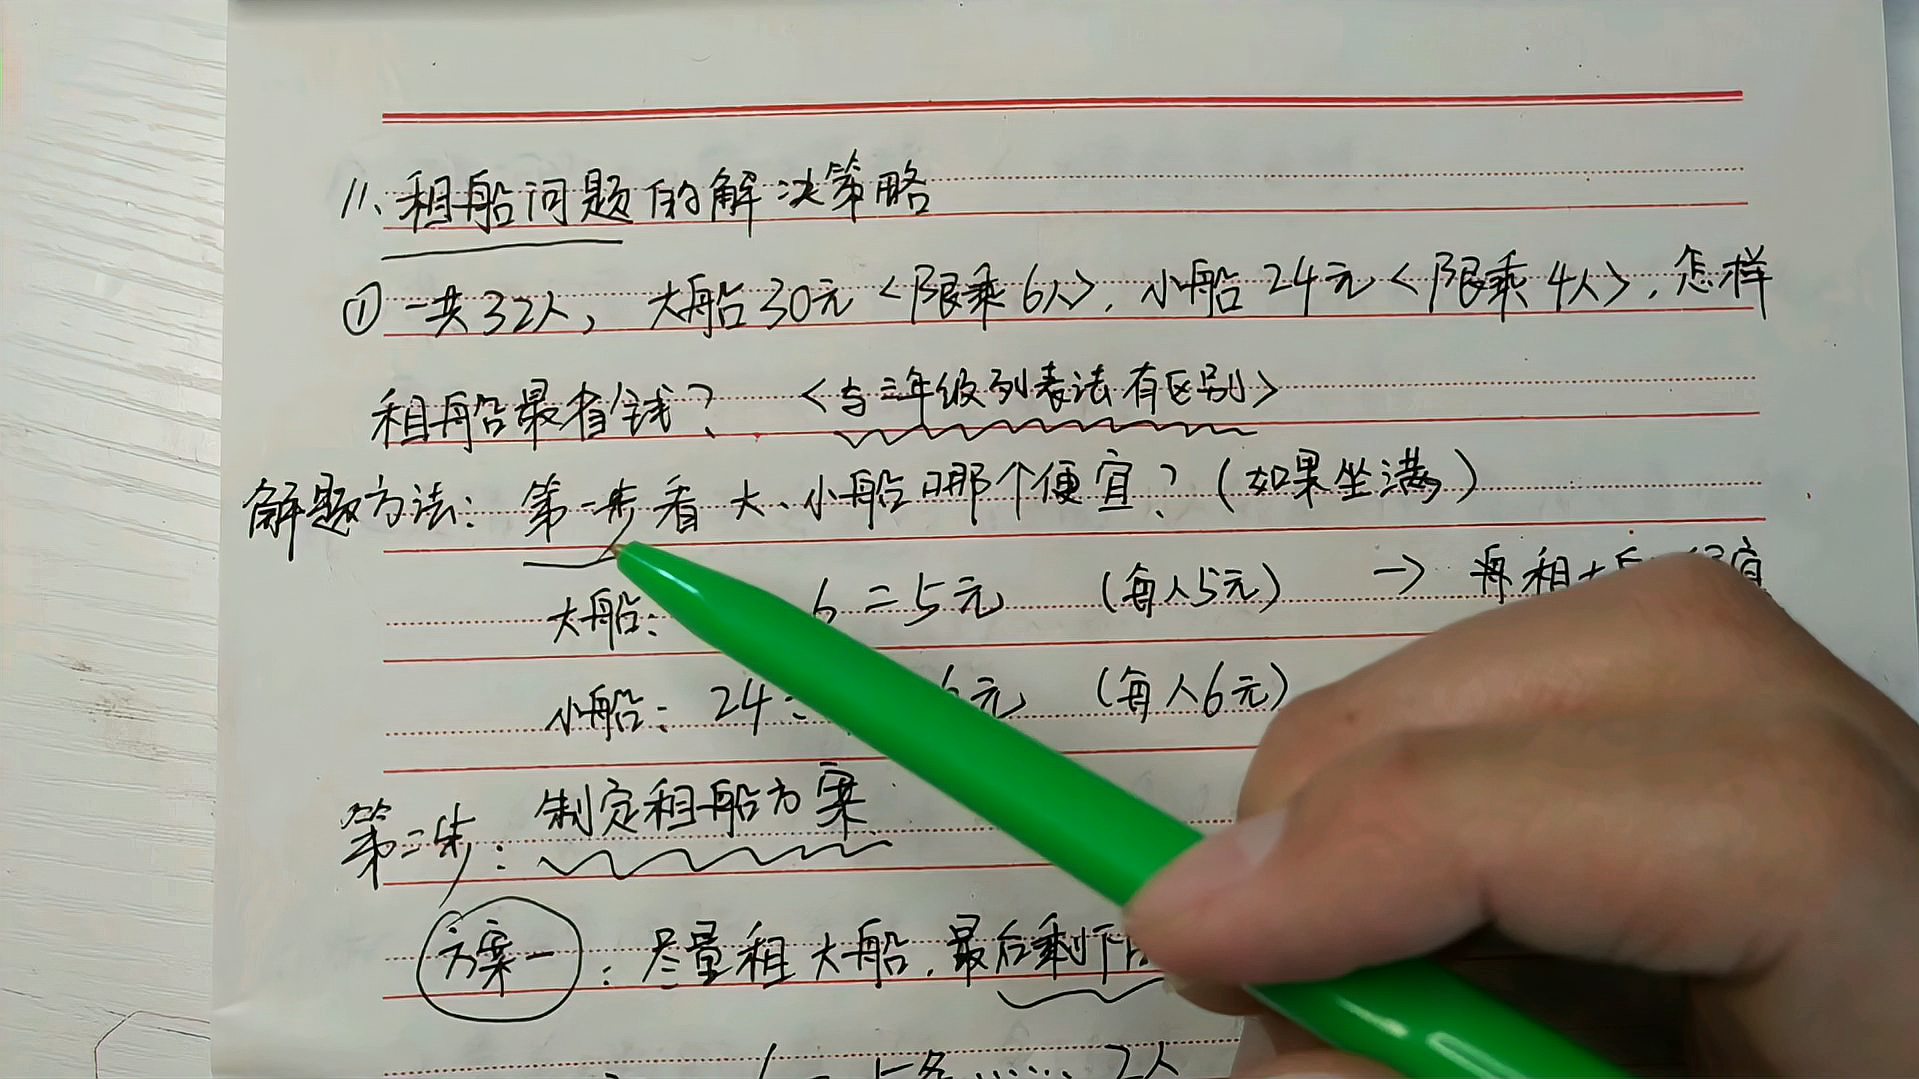 11、租船问题的解决策略
① 一共32人，大船30元<限乘6人>，小船24元<限乘4人>，怎样
租船最省钱？ <与三年级列表法有区别>
解题方法：第一步看大、小船哪个便宜？（如果坐满）
大船： 6=5元 （每人5元） → 再租大
小船：24÷ 6元 （每人6元）
第二步：制定租船方案
方案一：尽量租大船，最后剩下
2人